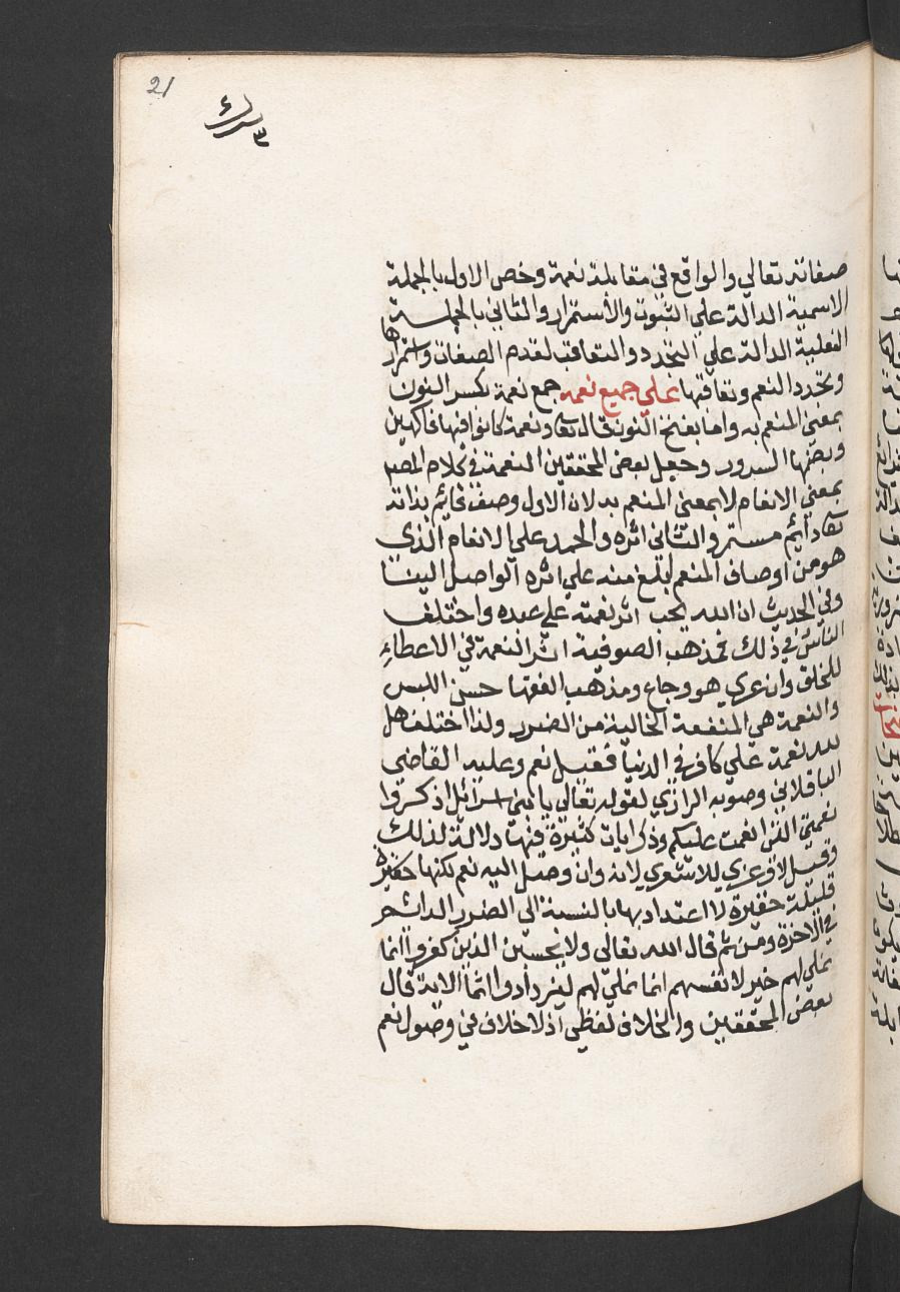 21
صفاته تعالي والواقع في مقابلة نعمة وخص الاول بالجملة
الاسمية الدالة علي الثبوت والأستمرار والثاني بالجملـــة
الفعلية الدالة علي التجدد والتعاقب لقدم الصفات واستمرارها
وتجدد النعم وتعاقبها علي جميع نعمه جمع نعمة بكسر النون
بمعني المنعم به واما بفتح النون قال تعا ونعمة كانوا فيها فاكهين
وبضمها السرور وجعل بعض المحققين النعمة في كلام المص
بمعني الانعام لا بمعني المنعم به لان الاول وصف قائم بذاته
تعا دائم مستمر والثاني اثره والحمد علي الانعام الذي
هو من اوصاف المنعم ابلغ منه علي اثره الواصل الينا
وفي الحديث ان الله يحب اثر نعمته علي عبده واختلف
الناس في ذلك فمذهب الصوفية اثر النعمة في الاعطاء
للخلق وان عري هو وجاع ومذهب الفقها حسن اللبس
والنعمة هي المنفعة الخالية من الضرر ولذا اختلف هل
لله نعمة علي كافر في الدنيا فقيل نعم وعليه القاضي
الباقلاني وصوبه الرازي لقوله تعالي يا بني اسرائل اذكروا
نعمتي التي انعمت عليكم وذكر ايات كثيرة فيها دلالة لذلك
وقيل لا وعزي للاشعري لانه وان وصل اليه نعم لكنها
قليلة حقيرة لا اعتداد بها بالنسبة الي الضرر الدائم
في الاخرة ومن ثم قال الله تعالي ولا يحسبن الذين كفروا انما
نملي لهم خير لانفسهم انما نملي لهم ليزدادوا اثما الاية قال
بعض المحققين والخلاف لفظي اذ لا خلاف في وصول نعم